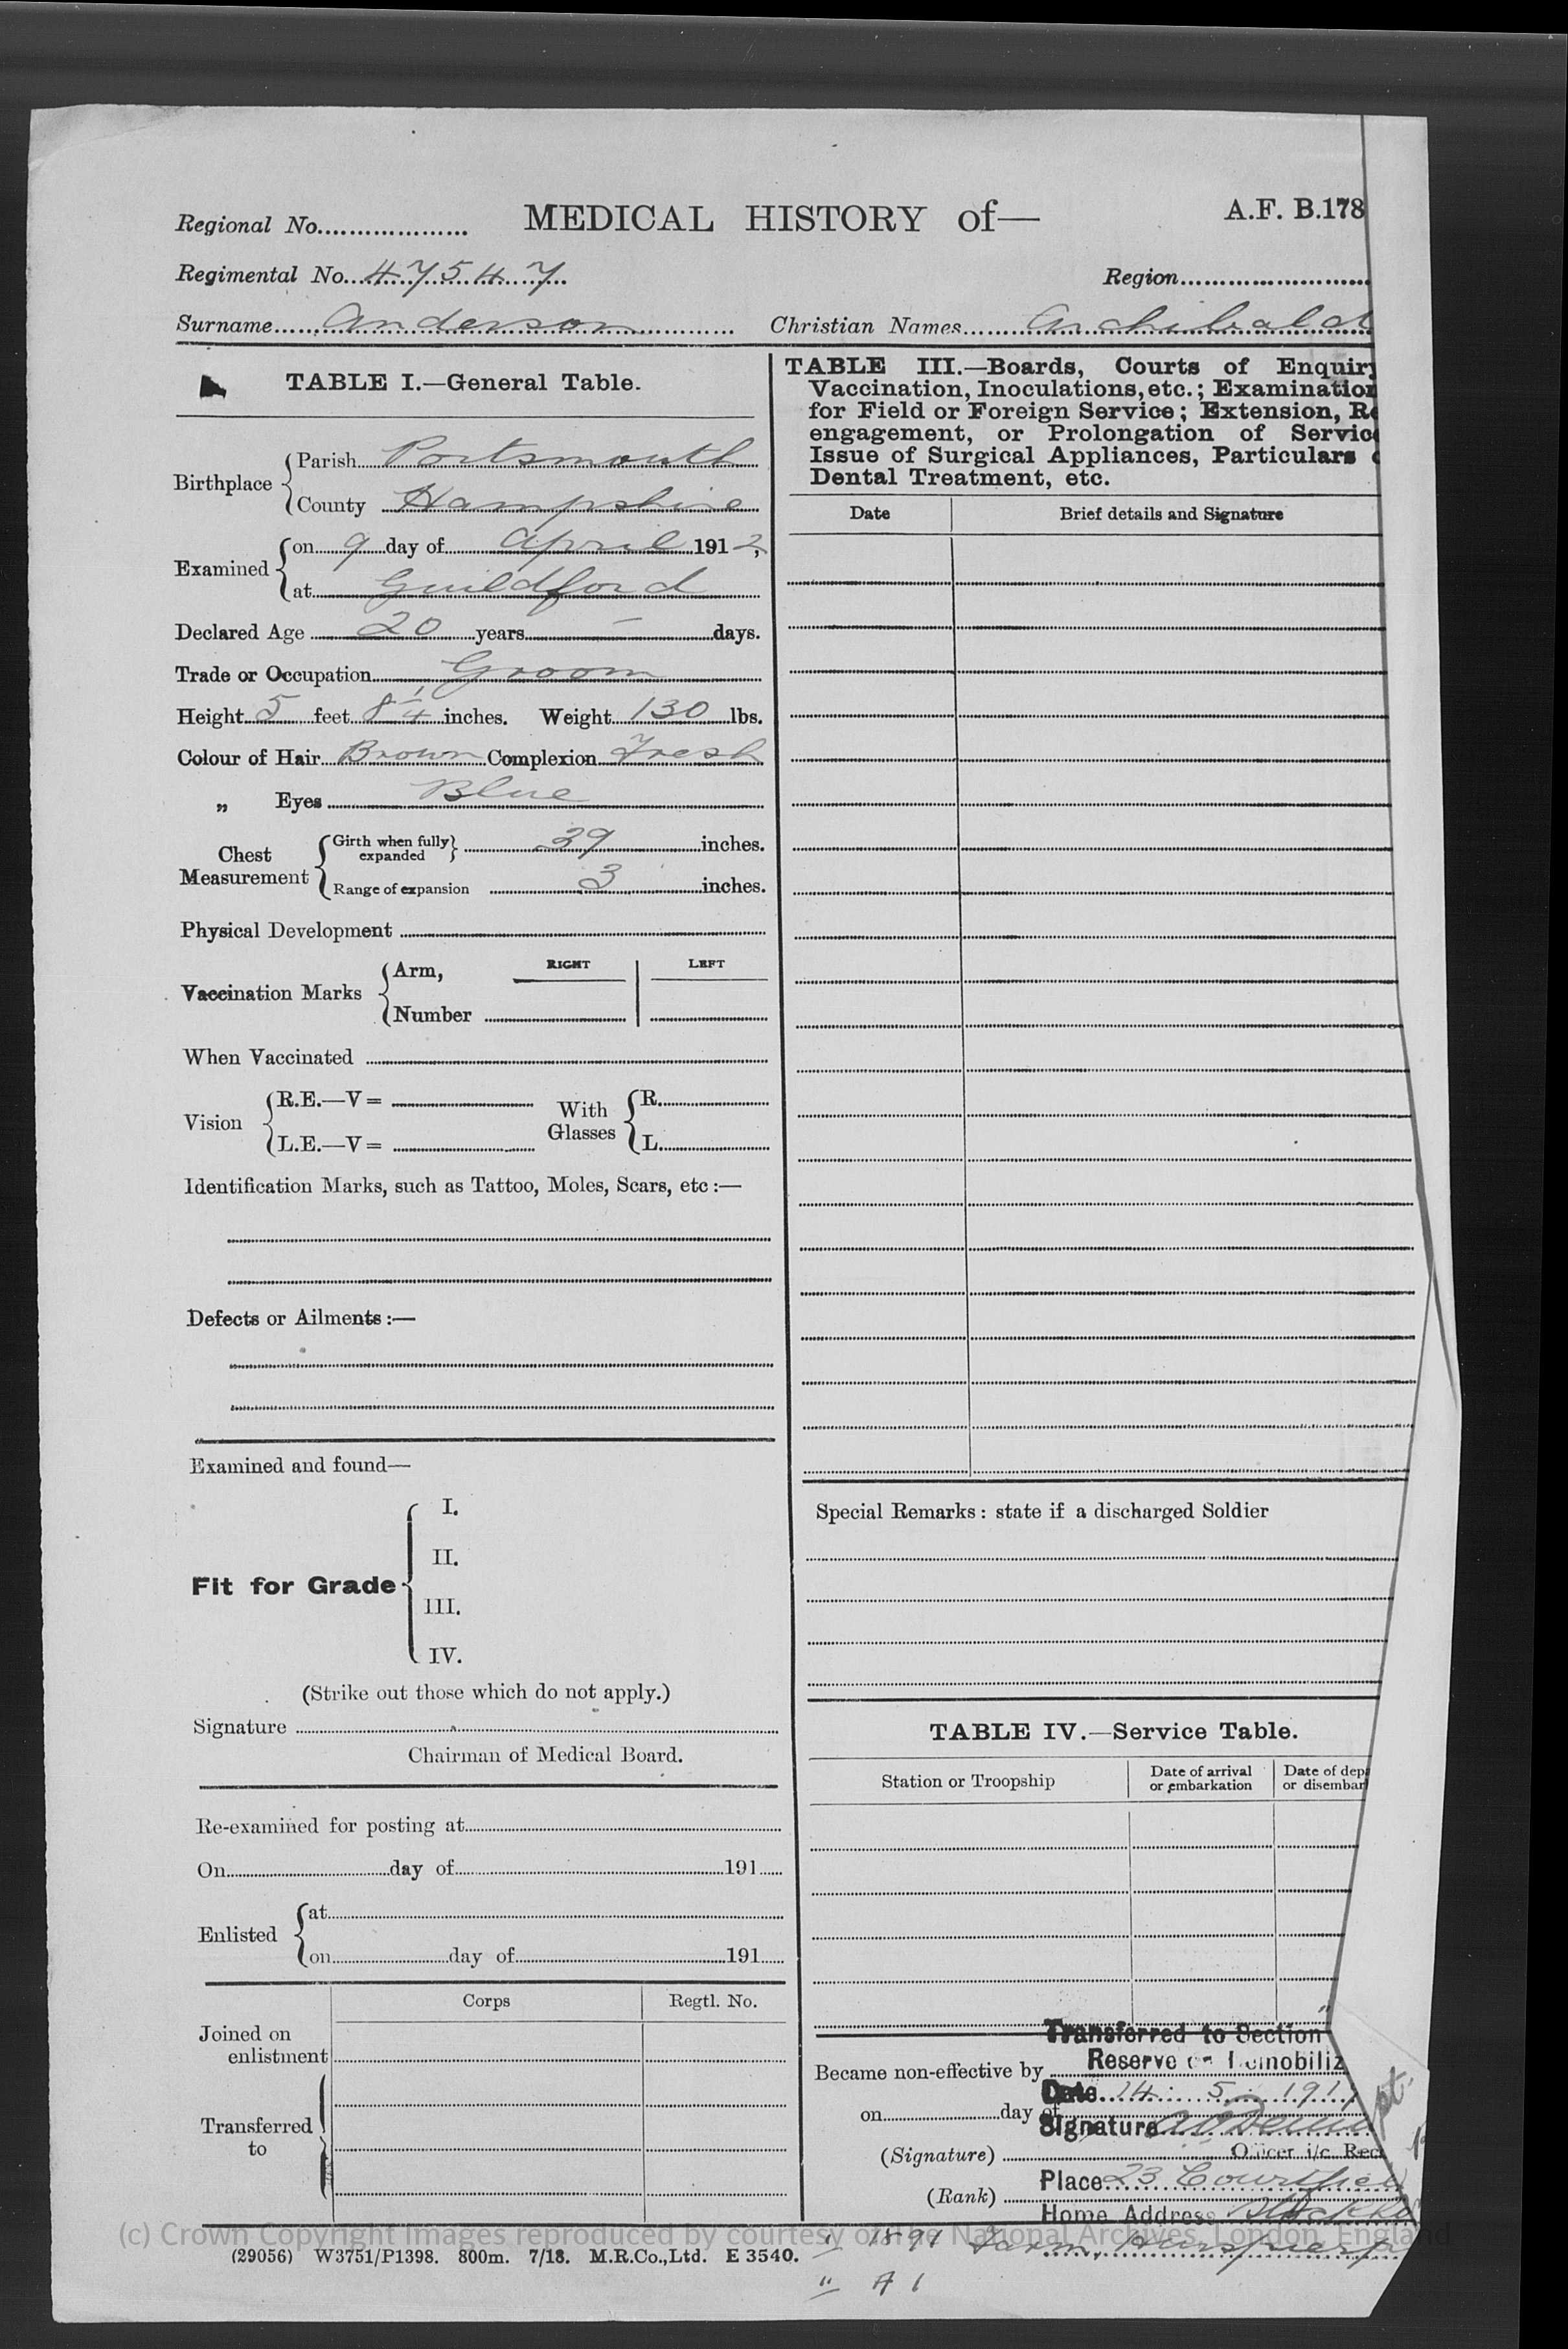 Regional No................... MEDICAL HISTORY of— A.F. B.178
Regimental No. 47547 Region........................
Surname Anderson Christian Names Archibald
TABLE I.—General Table.
Birthplace { Parish Portsmouth
County Hampshire
Examined { on 9 day of April 1912,
at Guildford
Declared Age 20 years — days.
Trade or Occupation Groom
Height 5 feet 8 1/4 inches. Weight 130 lbs.
Colour of Hair Brown Complexion Fresh
„ Eyes Blue
Chest Measurement { Girth when fully expanded } 39 inches.
Range of expansion 3 inches.
Physical Development
Vaccination Marks { Arm, RIGHT LEFT
Number
When Vaccinated
Vision { R.E.—V= With Glasses { R.
L.E.—V= L.
Identification Marks, such as Tattoo, Moles, Scars, etc :—
Defects or Ailments :—
Examined and found—
Fit for Grade { I.
II.
III.
IV.
(Strike out those which do not apply.)
Signature
Chairman of Medical Board.
Re-examined for posting at
On day of 191
Enlisted { at
on day of 191
Corps Regtl. No.
Joined on
enlistment
Transferred
to
TABLE III.—Boards, Courts of Enquiry
Vaccination, Inoculations, etc.; Examination
for Field or Foreign Service; Extension, Re
engagement, or Prolongation of Servic
Issue of Surgical Appliances, Particulars
Dental Treatment, etc.
Date Brief details and Signature
Special Remarks : state if a discharged Soldier
TABLE IV.—Service Table.
Station or Troopship Date of arrival or embarkation Date of dep or disembar
Transferred to Section
Became non-effective by Reserve on Demobiliz
Date 14 5 191
on day of
Signature
(Signature) Officer i/c. Rec
Place 23
(Rank)
Home Address
" 1891 Farm, Hurstpierp
" A 1
(c) Crown Copyright Images reproduced by courtesy of The National Archives, London, England
(29056) W3751/P1398. 800m. 7/18. M.R.Co.,Ltd. E 3540.